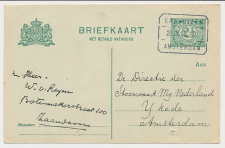 BRIEFKAART
MET BETAALD ANTWOORD
ENKHUIZEN
AMSTERDAM
Den Heer
W. v. Reyen
Botenmakerstraat 100
Zaandam
De Directie der
Stoomvaart My. Nederland
Y kade
Amsterdam